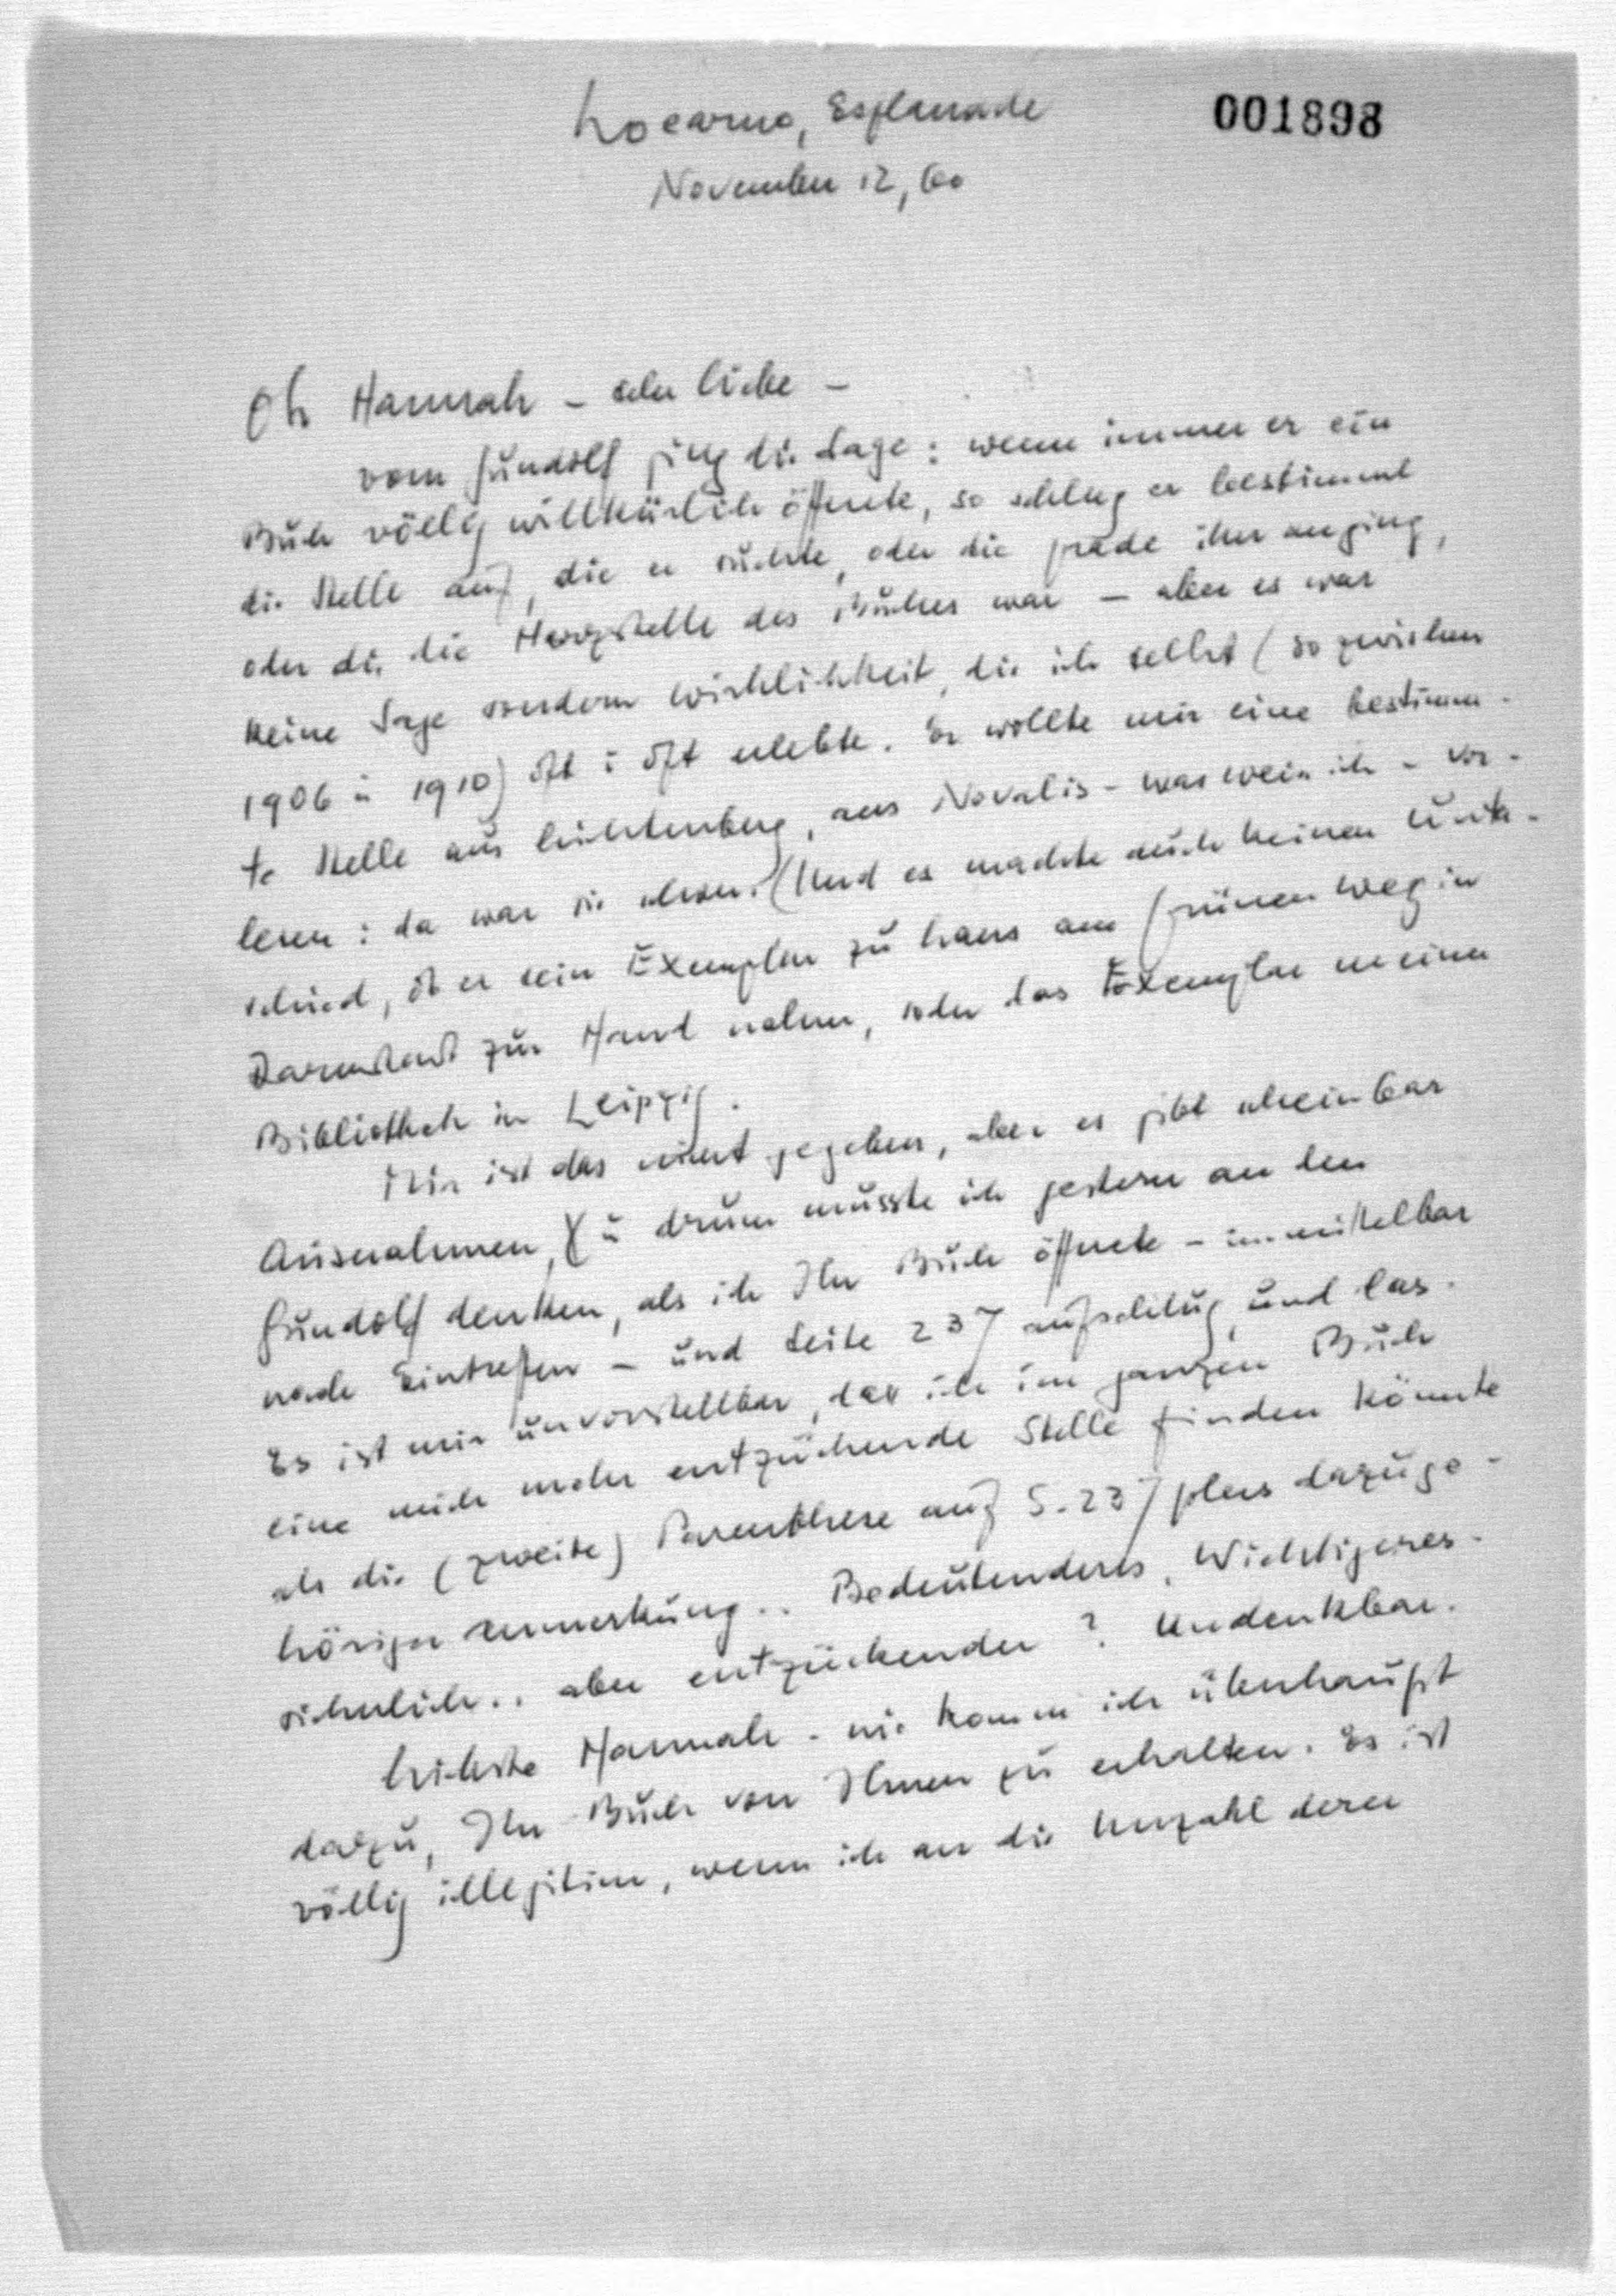 Locarno, Esplanade
001898
November 12, 60
Oh Hannah – sehr liebe –
vom Gundolf ging die Sage: wenn immer er ein
Buch völlig willkürlich öffnete, so schlug er bestimmt
die Stelle auf, die er suchte, oder die grade ihn anging,
oder die die Herzstelle des Buches war – aber es war
keine Sage sondern Wirklichkeit, die ich selbst (so zwischen
1906 u 1910) oft u oft erlebte. Er wollte mir eine bestimm-
te Stelle aus Lichtenberg, aus Novalis – was weiss ich – vor-
lesen: da war sie schon. (Und es machte auch keinen Unter-
schied, ob er sein Exemplar zu Haus am Grünen Weg in
Darmstadt zur Hand nahm, oder das Exemplar meiner
Bibliothek in Leipzig.
Mir ist das nicht gegeben, aber es gibt scheinbar
Ausnahmen, u drum musste ich gestern an den
Gundolf denken, als ich Ihr Buch öffnete – unmittelbar
nach Eintreffen – und Seite 237 aufschlug und las.
Es ist mir unvorstellbar, das ich im ganzen Buch
eine mich mehr entzückende Stelle finden könnte
als die (zweite) Parenthese auf S. 237 plus dazuge-
höriger Anmerkung.. Bedeutenderes, Wichtigeres
sicherlich.. aber entzückender? Undenkbar.
Liebste Hannah – wie komm ich überhaupt
dazu, Ihr Buch von Ihnen zu erhalten. Es ist
völlig illegitim, wenn ich an die Unzahl derer